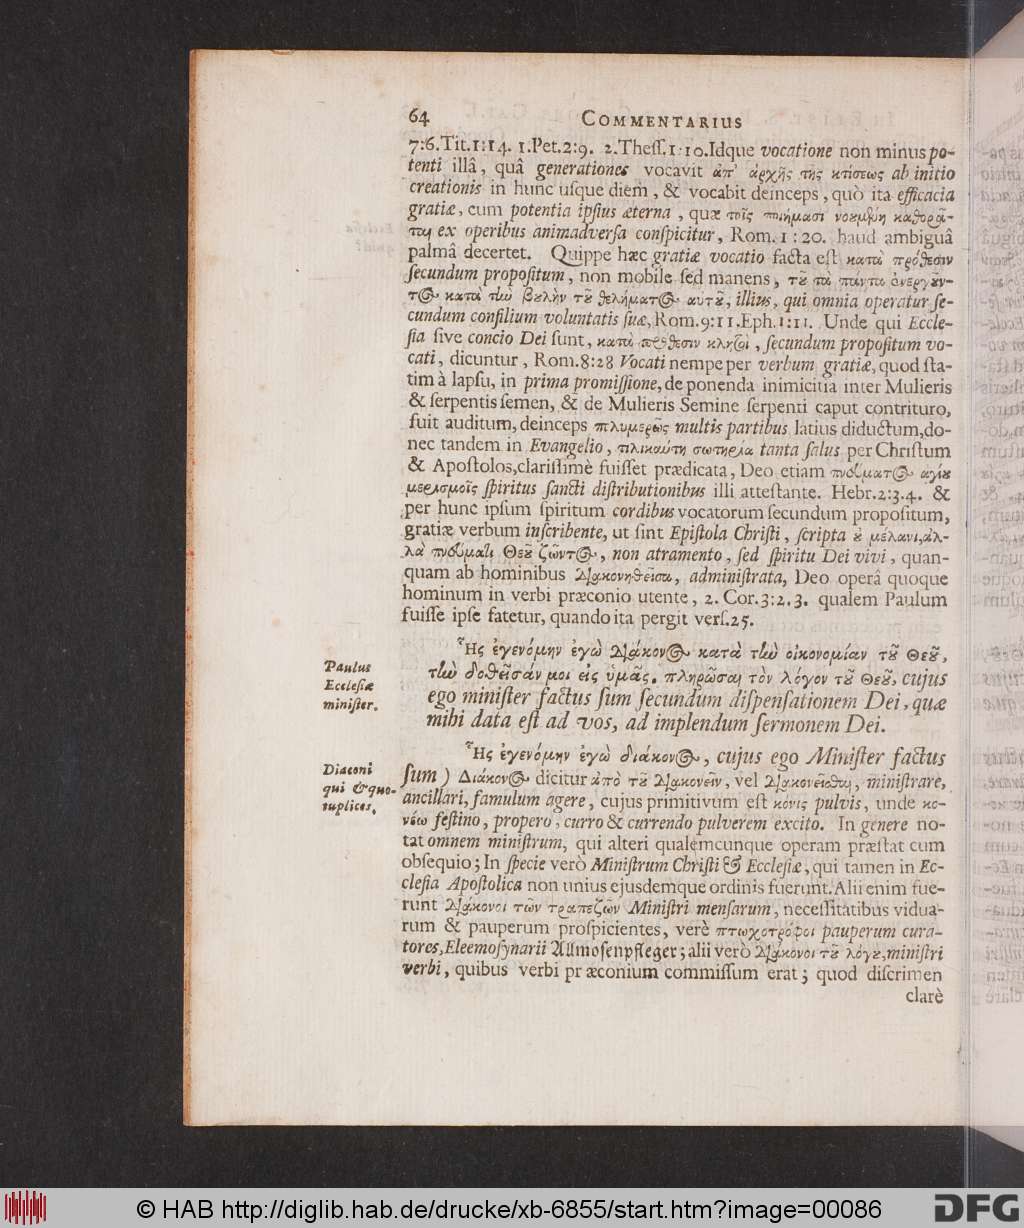 64 COMMENTARIUS
7:6. Tit. 1:14. 1. Pet. 2:9. 2. Theſſ. 1:10. Idque vocatione non minus po-
tenti illâ, quâ generationes vocavit ἀπ' ἀρχῆς τῆς κτίσεως ab initio
creationis in hunc uſque diem, & vocabit deinceps, quò ita efficacia
gratiæ, cum potentia ipſius æterna, quæ τοῖς ποιήμασι νοούμενη καθορᾶ-
ται ex operibus animadverſa conſpicitur, Rom. 1:20. haud ambiguâ
palmâ decertet. Quippe hæc gratiæ vocatio facta eſt κατὰ πρόθεσιν
ſecundum propoſitum, non mobile ſed manens, τοῦ τὰ πάντα ἐνεργοῦν-
τος κατὰ τὴν βουλὴν τοῦ θελήματος αὐτοῦ, illius, qui omnia operatur ſe-
cundum conſilium voluntatis ſuæ, Rom. 9:11. Eph. 1:11. Unde qui Eccle-
ſia ſive concio Dei ſunt, κατὰ πρόθεσιν κλητοὶ, ſecundum propoſitum vo-
cati, dicuntur, Rom. 8:28 Vocati nempe per verbum gratiæ, quod ſta-
tim à lapſu, in prima promiſſione, de ponenda inimicitia inter Mulieris
& ſerpentis ſemen, & de Mulieris Semine ſerpenti caput contrituro,
fuit auditum, deinceps πλυμερως multis partibus latius diductum, do-
nec tandem in Evangelio, τηλικαύτη σωτηρία tanta ſalus per Chriſtum
& Apoſtolos, clariſſimè fuiſſet prædicata, Deo etiam πνεύματος αγίου
μερισμοῖς ſpiritus ſancti diſtributionibus illi atteſtante. Hebr. 2:3.4. &
per hunc ipſum ſpiritum cordibus vocatorum ſecundum propoſitum,
gratiæ verbum inſcribente, ut ſint Epiſtola Chriſti, ſcripta οὐ μέλανι, ἀλ-
λὰ πνεύματι Θεοῦ ζῶντος, non atramento, ſed ſpiritu Dei vivi, quan-
quam ab hominibus διακονηθεῖσα, adminiſtrata, Deo operâ quoque
hominum in verbi præconio utente, 2. Cor. 3:2.3. qualem Paulum
fuiſſe ipſe fatetur, quando ita pergit verſ. 25.
Ἧς ἐγενόμην ἐγὼ διάκονος κατὰ τὴν οἰκονομίαν τοῦ Θεοῦ,
τὴν δοθεῖσάν μοι εἰς ὑμᾶς, πληρῶσαι τὸν λόγον τοῦ Θεοῦ, cujus
ego miniſter factus ſum ſecundum diſpenſationem Dei, quæ
mihi data eſt ad vos, ad implendum ſermonem Dei.
Paulus
Eccleſiæ
miniſter.
Ἧς ἐγενόμην ἐγὼ διάκονος, cujus ego Miniſter factus
ſum) Διάκονος dicitur ἀπὸ τοῦ διακονεῖν, vel διακονεῖσθαι, miniſtrare,
ancillari, famulum agere, cujus primitivum eſt κόνις pulvis, unde κο-
νέω feſtino, propero, curro & currendo pulverem excito. In genere no-
tat omnem miniſtrum, qui alteri qualemcunque operam præſtat cum
obſequio; In ſpecie verò Miniſtrum Chriſti & Eccleſiæ, qui tamen in Ec-
cleſia Apoſtolica non unius ejusdemque ordinis fuerunt. Alii enim fue-
runt διάκονοι τῶν τραπεζῶν Miniſtri menſarum, neceſſitatibus vidua-
rum & pauperum proſpicientes, verè πτωχοτρόφοι pauperum cura-
tores, Eleemoſynarii Allmoſenpfleger; alii verò διάκονοι τοῦ λόγου, miniſtri
verbi, quibus verbi præconium commiſſum erat; quod diſcrimen
clarè
Diaconi
qui & quo-
tuplices.
© HAB http://diglib.hab.de/drucke/xb-6855/start.htm?image=00086
DFG